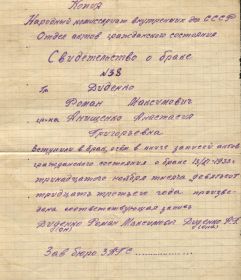 Копия
Народный комиссариат внутренних дел СССР
Отдел актов гражданского состояния
Свидетельство о браке
№38
Гр. Диденко
Роман Максимович
гр-ка Анищенко Анастасия
Григорьевна
Вступили в брак, о чем в книге записей актов
гражданского состояния о браке 13/XI 1933 г
тринадцатого ноября тысяча девятьсот
тридцать третьего года произве-
дена соответствующая запись
Диденко Роман Максимович Диденко А.Г.
(он) (она)
Зав бюро ЗАГС